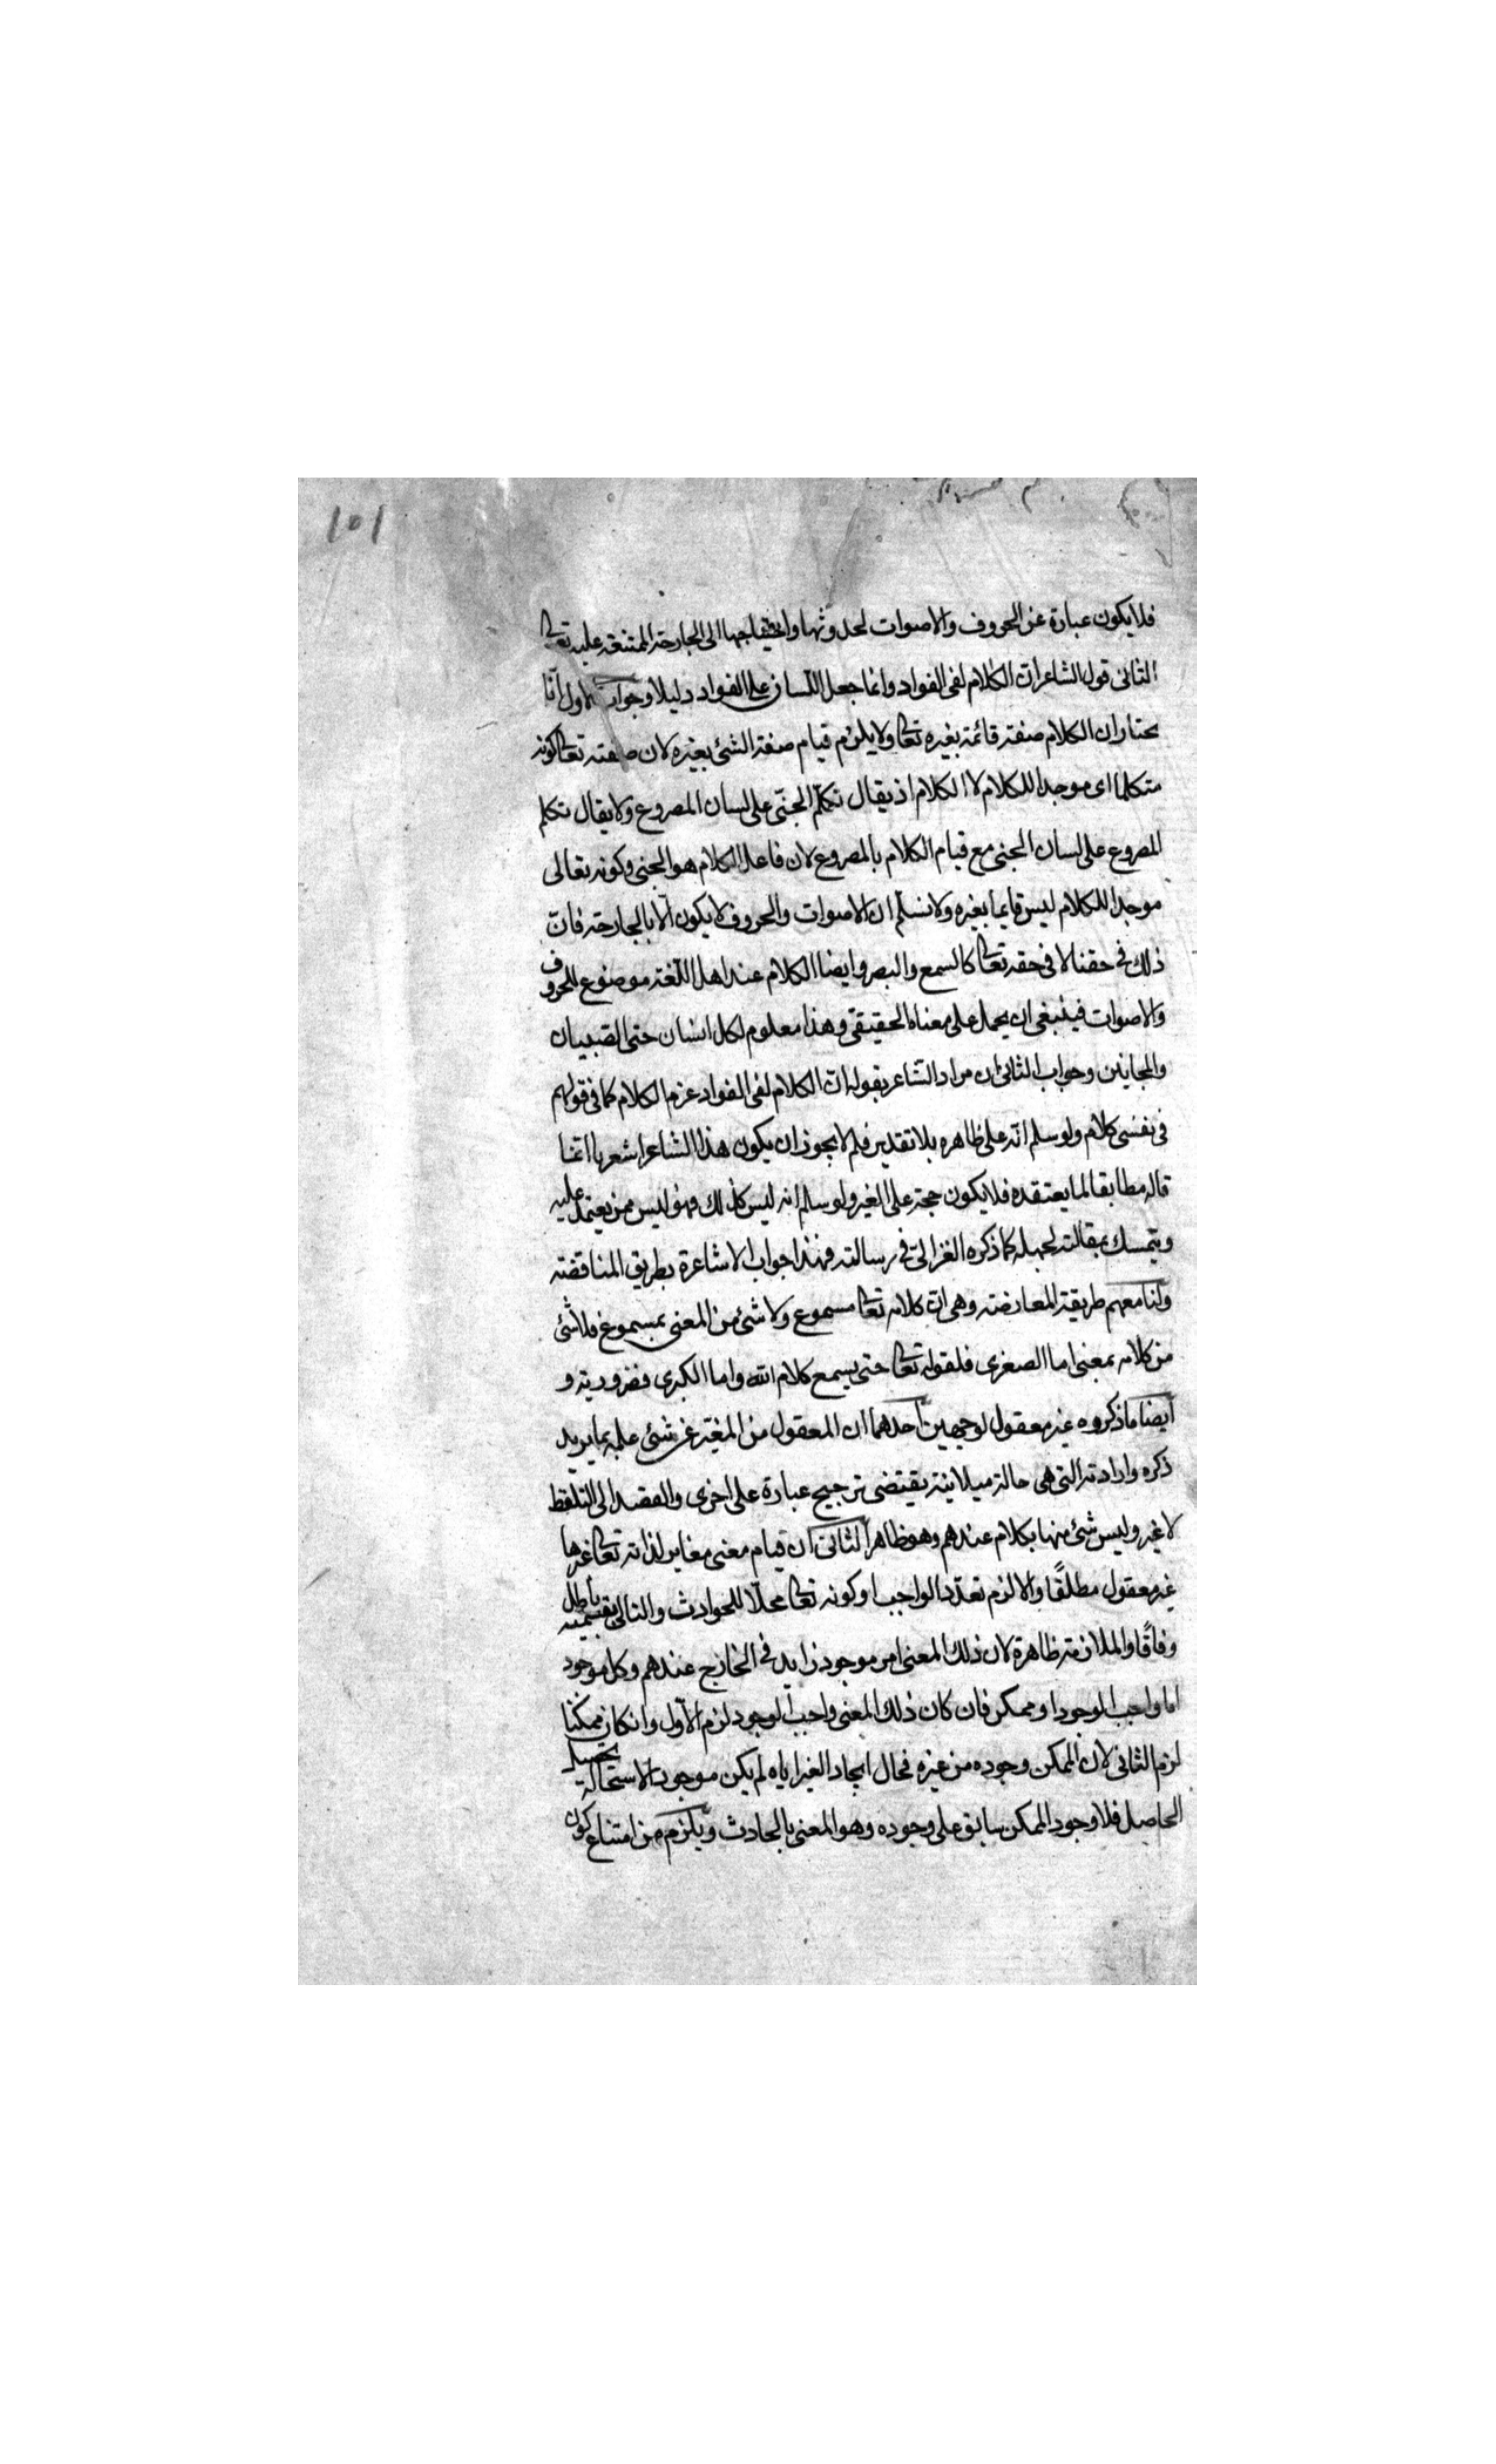 ١٥١
فلا يكون عبارة عن الحروف والاصوات لحدوثها واحتياجها الى الجارحة الممتنعة عليه تعالى
الثانى قول الشاعر ان الكلام لفى الفواد وانما جعل اللسان على الفواد دليلا وجواب الاول انا
نختار ان الكلام صفة قائمة بغيره تعالى ولا يلزم قيام صفة الشئ بغيره لان صفته تعالى كونه
متكلما اى موجدا للكلام لا الكلام اذ يقال تكلم الجنّى على لسان المصروع ولا يقال تكلم
المصروع على لسان الجنى مع قيام الكلام بالمصروع لان فاعل الكلام هو الجنى وكونه تعالى
موجدا للكلام ليس قايما بغيره ولا نسلّم ان الاصوات والحروف لا يكون الّا بالجارحة فانّ
ذلك فى حقنا لا فى حقه تعالى كالسمع والبصر وايضا الكلام عند اهل اللّغة موضوع للحروف
والاصوات فينبغى ان يحمل على معناه الحقيقى وهذا معلوم لكل انسان حتى الصبيان
والمجانين وجواب الثانى ان مراد الشاعر بقوله ان الكلام لفى الفواد عزم الكلام كما فى قولهم
فى نفسى كلام ولو سلم انّه على ظاهره بلا تقدير فلم لا يجوز ان يكون هذا الشاعر اشعريا انما
قاله مطابقا لما يعتقده فلا يكون حجة على الغير ولو سلم انه ليس كذلك فهو ليس ممن يعتمد عليه
ويتمسك بمقالته لجهله كما ذكره الغزالىّ فى رسالته فهذا جواب الاشاعرة بطريق المناقضة
ولنا معهم طريقة المعارضة وهى ان كلامه تعالى مسموع ولا شئ من المعنى بمسموع فلا شئ
من كلامه بمعنى اما الصغرى فلقوله تعالى حتى يسمع كلام الله واما الكبرى فضرورية و
ايضا ما ذكروه غير معقول لوجهين احدهما ان المعقول من المغيّر عن شئ علمه بما يريد
ذكره وارادته التى هى حالة ميلانية يقتضى ترجيح عبارة على اخرى والقصد الى التلفظ
لا غير وليس شئ منها بكلام عندهم وهو ظاهر الثانى ان قيام معنى مغاير لذاته تعالى غيرها
غير معقول مطلقًا والا لزم تعدّد الواجب او كونه تعالى محلّا للحوادث والتالى بقسميه باطل
وفاقًا والملازمة ظاهرة لان ذلك المعنى امر موجود زايد فى الخارج عندهم وكل موجود
اما واجب الوجود او ممكن فان كان ذلك المعنى واجب الوجود لزم الاول وان كان ممكنا
لزم الثانى لان الممكن وجوده من غيره فحال ايجاد الغير اياه لم يكن موجودا لاستحالة تحصيل
الحاصل فلا وجود الممكن سابق على وجوده وهو المعنى بالحادث ويلزم من امتناع كون